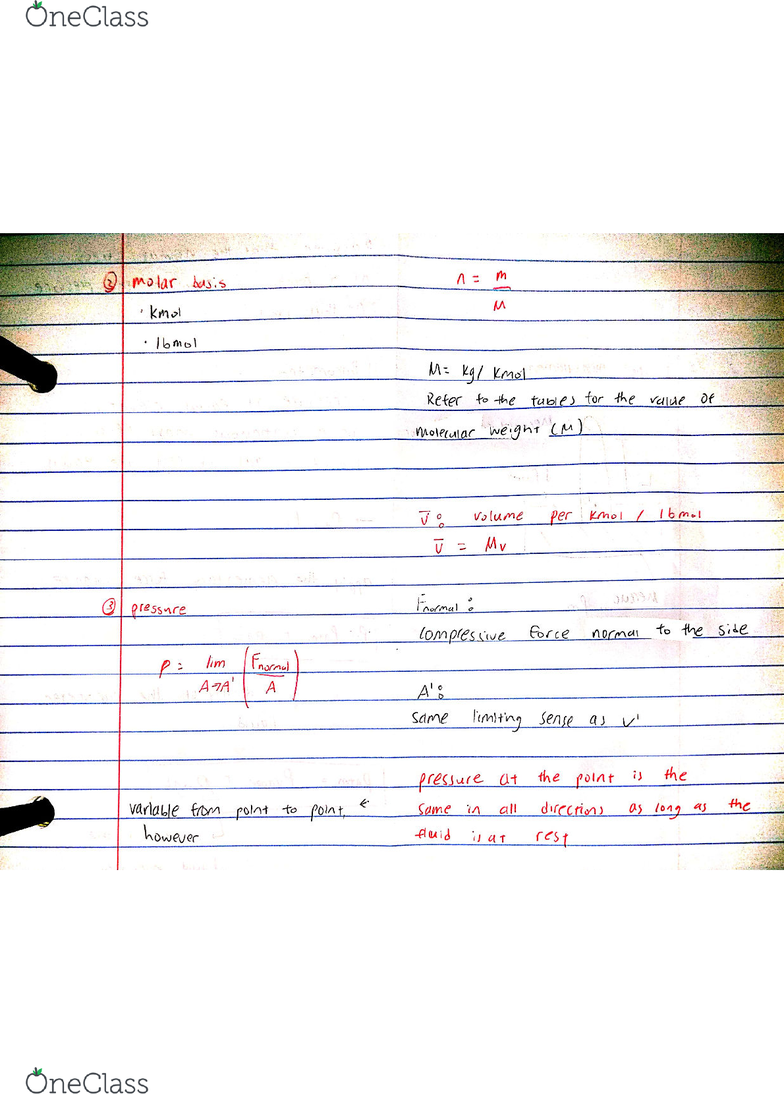 OneClass
② molar basis
n = m / M
· kmol
· lbmol
M= kg/ kmol
Refer to the tables for the value of
molecular weight (M)
v̅: volume per kmol / lbmol
v̅ = Mv
③ pressure
Fnormal:
compressive force normal to the side
P = lim A→A' (Fnormal / A)
A':
same limiting sense as V'
pressure at the point is the
variable from point to point, ←
same in all directions as long as the
however
fluid is at rest
OneClass